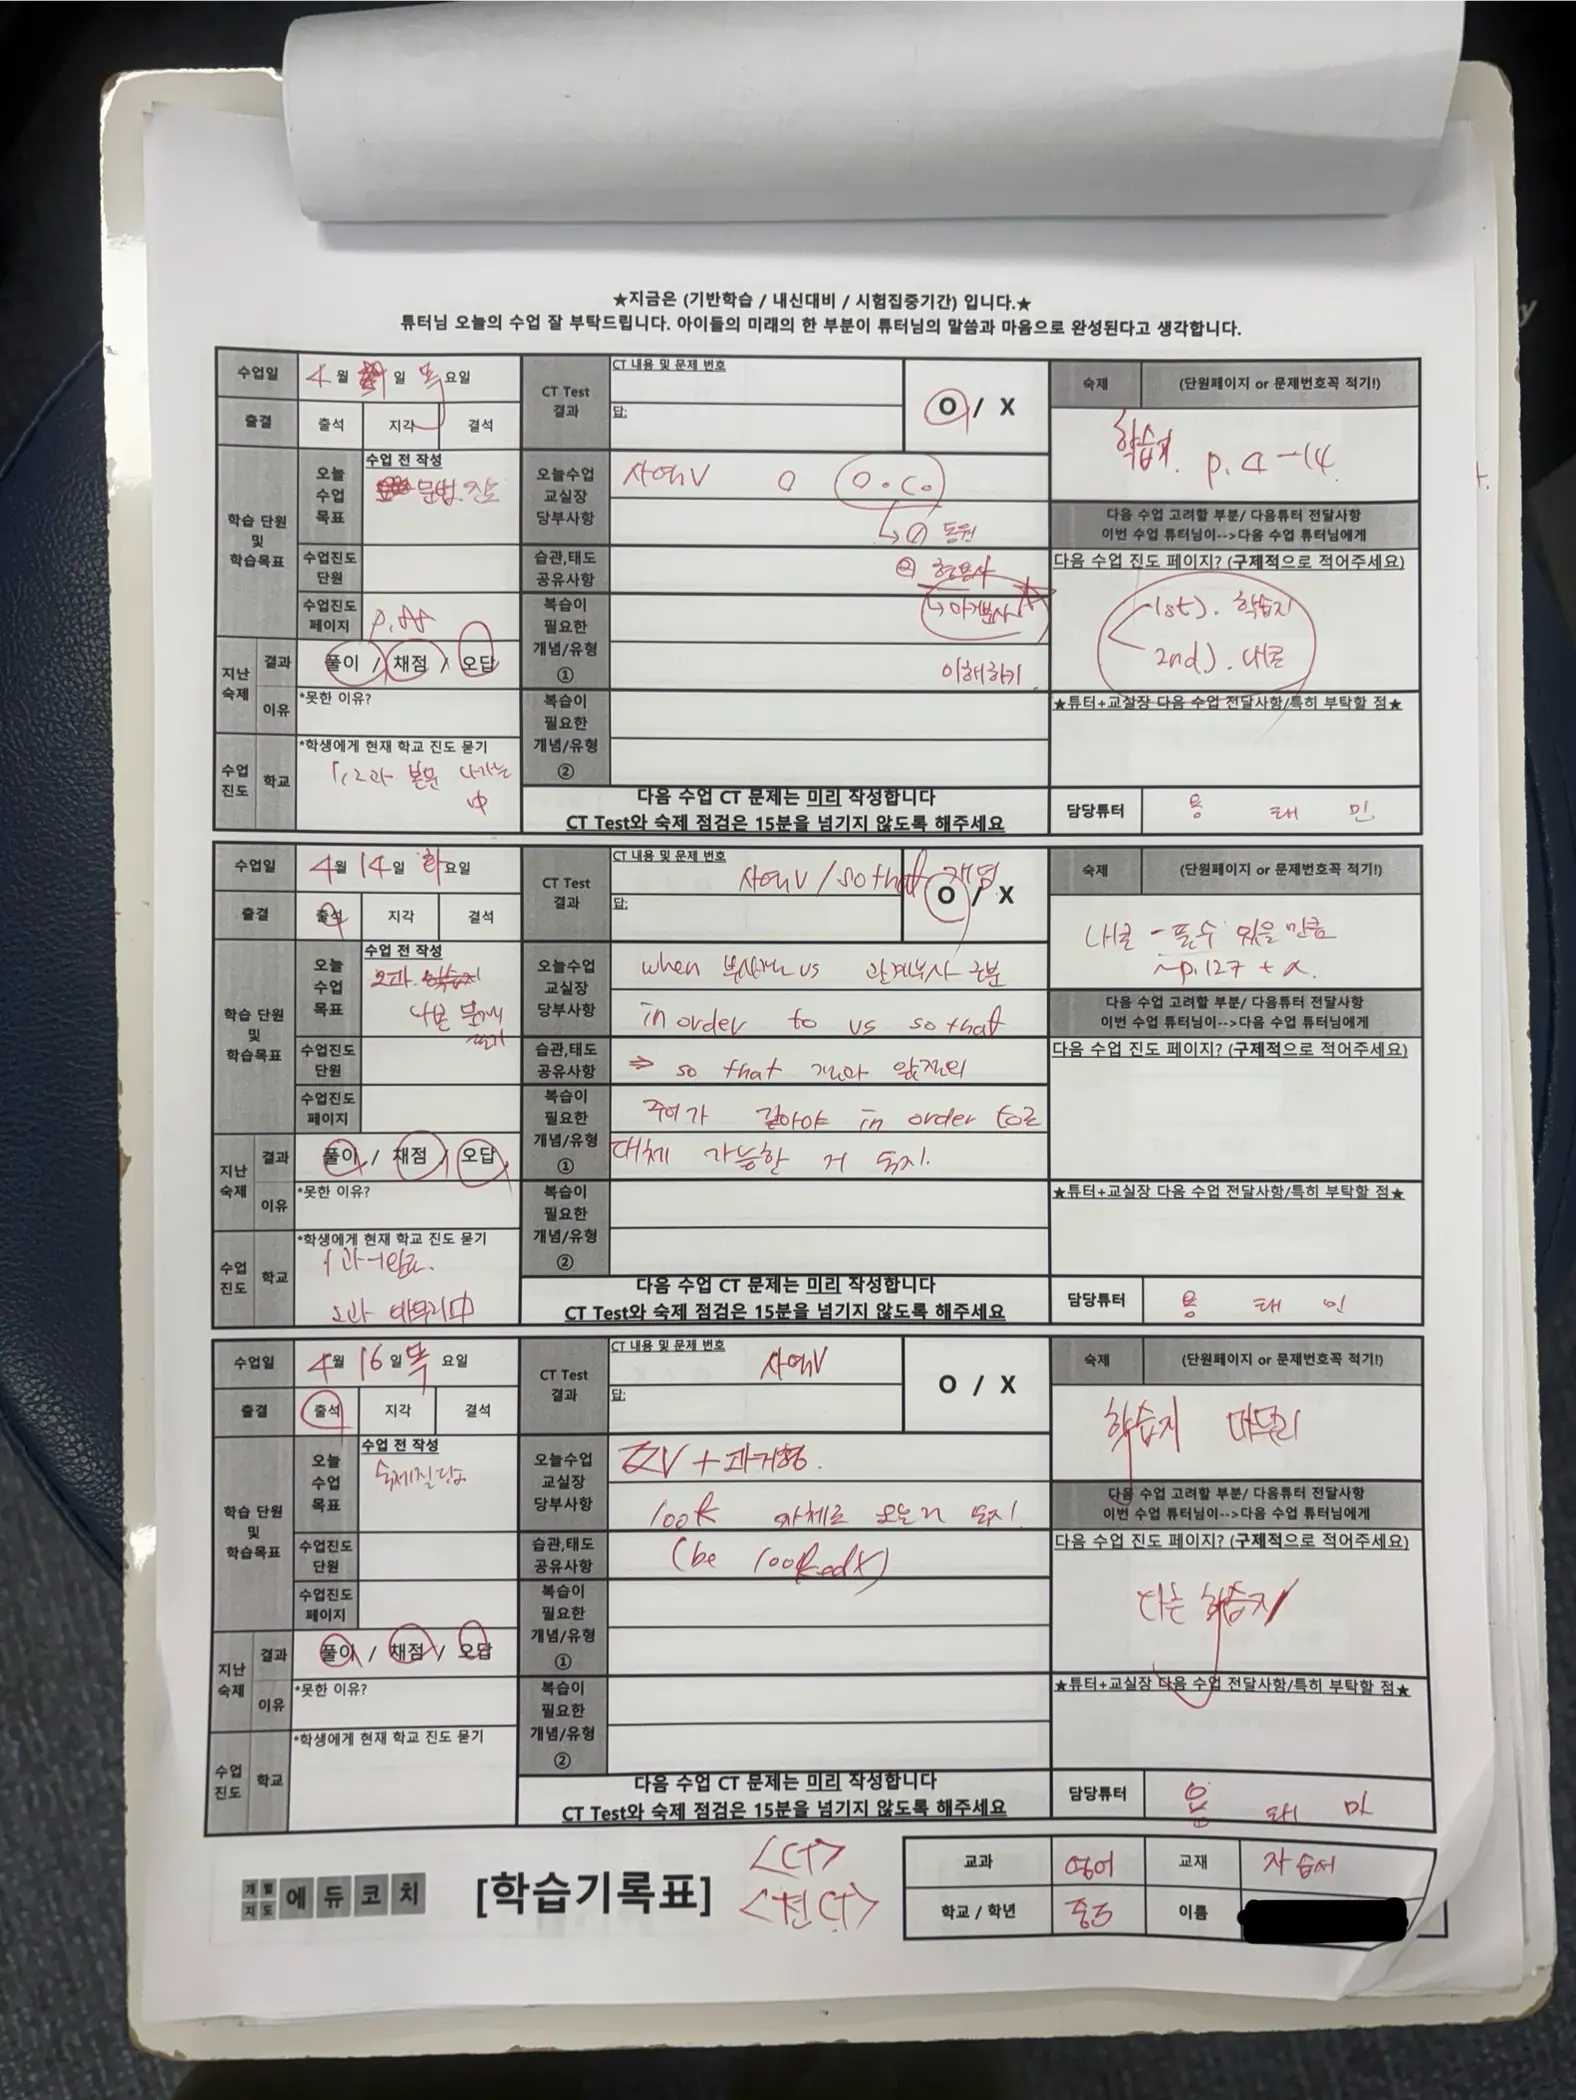 ★지금은 (기반학습 / 내신대비 / 시험집중기간) 입니다.★
튜터님 오늘의 수업 잘 부탁드립니다. 아이들의 미래의 한 부분이 튜터님의 말씀과 마음으로 완성된다고 생각합니다.
수업일 4월 일 목요일
출결 출석 지각 결석
학습 단원 및 학습목표
오늘 수업 목표
수업 전 작성
문법.
수업진도 단원
수업진도 페이지 p.
지난 숙제 결과 풀이 / 채점 / 오답
이유 *못한 이유?
수업 진도 학교 *학생에게 현재 학교 진도 묻기
1,2과 본문 나가는
中
CT Test 결과
CT 내용 및 문제 번호
답:
O / X
오늘수업 교실장 당부사항
사역V O O.C.
↳ ① 동원
습관,태도 공유사항
② 형용사
복습이 필요한 개념/유형 ①
↳ 과거분사
이해하기
복습이 필요한 개념/유형 ②
다음 수업 CT 문제는 미리 작성합니다
CT Test와 숙제 점검은 15분을 넘기지 않도록 해주세요
숙제 (단원페이지 or 문제번호꼭 적기!)
학습지 p. 4 -14.
다음 수업 고려할 부분/ 다음튜터 전달사항
이번 수업 튜터님이-->다음 수업 튜터님에게
다음 수업 진도 페이지? (구제적으로 적어주세요)
1st). 학습지
2nd). 내콘
★튜터+교실장 다음 수업 전달사항/특히 부탁할 점★
담당튜터 용 태 민
수업일 4월 14일 화요일
출결 출석 지각 결석
학습 단원 및 학습목표
오늘 수업 목표
수업 전 작성
2과.
내콘 문제
풀기
수업진도 단원
수업진도 페이지
지난 숙제 결과 풀이 / 채점 / 오답
이유 *못한 이유?
수업 진도 학교 *학생에게 현재 학교 진도 묻기
1과-완료.
2과 마무리中
CT Test 결과
CT 내용 및 문제 번호
사역V / so that 개념
답:
O / X
오늘수업 교실장 당부사항
when vs 관계부사 구분
in order to vs so that
습관,태도 공유사항
⇒ so that 앞뒤의
복습이 필요한 개념/유형 ①
주어가 같아야 in order to로
대체 가능한 거 숙지.
복습이 필요한 개념/유형 ②
다음 수업 CT 문제는 미리 작성합니다
CT Test와 숙제 점검은 15분을 넘기지 않도록 해주세요
숙제 (단원페이지 or 문제번호꼭 적기!)
내콘 - 풀 수 있을 만큼
~p.127 + α.
다음 수업 고려할 부분/ 다음튜터 전달사항
이번 수업 튜터님이-->다음 수업 튜터님에게
다음 수업 진도 페이지? (구제적으로 적어주세요)
★튜터+교실장 다음 수업 전달사항/특히 부탁할 점★
담당튜터 용 태 민
수업일 4월 16일 목요일
출결 출석 지각 결석
학습 단원 및 학습목표
오늘 수업 목표
수업 전 작성
숙제질답
수업진도 단원
수업진도 페이지
지난 숙제 결과 풀이 / 채점 / 오답
이유 *못한 이유?
수업 진도 학교 *학생에게 현재 학교 진도 묻기
CT Test 결과
CT 내용 및 문제 번호
사역V
답:
O / X
오늘수업 교실장 당부사항
조V + 과거형.
look 자체로 오는거 숙지
습관,태도 공유사항
(be looked X)
복습이 필요한 개념/유형 ①
복습이 필요한 개념/유형 ②
다음 수업 CT 문제는 미리 작성합니다
CT Test와 숙제 점검은 15분을 넘기지 않도록 해주세요
숙제 (단원페이지 or 문제번호꼭 적기!)
학습지 마무리
다음 수업 고려할 부분/ 다음튜터 전달사항
이번 수업 튜터님이-->다음 수업 튜터님에게
다음 수업 진도 페이지? (구제적으로 적어주세요)
다른 학습지
★튜터+교실장 다음 수업 전달사항/특히 부탁할 점★
담당튜터 용 태 민
개별지도 에듀코치
[학습기록표]
<CT>
교과 영어 교재 자습서
학교 / 학년 중3 이름